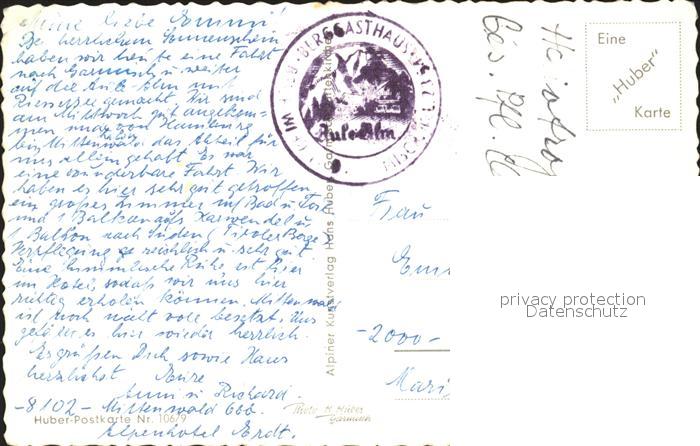 Meine liebe Emmi!
Bei herrlichem Sonnenschein
haben wir heute eine Fahrt
nach Garmisch u. weiter
auf die Aule-Alm mit
Riessersee gemacht. Wir sind
am Mittwoch gut angekom-
men und von Hamburg
bis Mittenwald das Abteil für
uns allein gehabt. Es war
eine wunderbare Fahrt. Wir
haben es hier sehr gut getroffen
ein großes Zimmer mit Bad u.
und 1 Balkon aufs Karwendel u.
1 Balkon nach Süden (Tiroler Berge)
Verpflegung reichlich u. sehr gut
Eine himmlische Ruhe ist hier
im Hotel, sodaß wir uns hier
richtig erholen können. Mittenwald
ist noch nicht voll besetzt. Uns
gefällt es hier wieder herrlich.
Es grüßen Dich sowie Haus
herzlichst Eure
Anni u. Richard.
-8102- Mittenwald Obb.
Huber-Postkarte Nr. 106/9
Alpenhotel Erdt.
BERGGASTHAUS
Aule-Alm
Alpiner Kunstverlag Hans Huber, Garmisch-Partenkirchen
Photo H. Huber
Garmisch
Frau
-2000-
Eine
„Huber"
Karte
privacy protection
Datenschutz